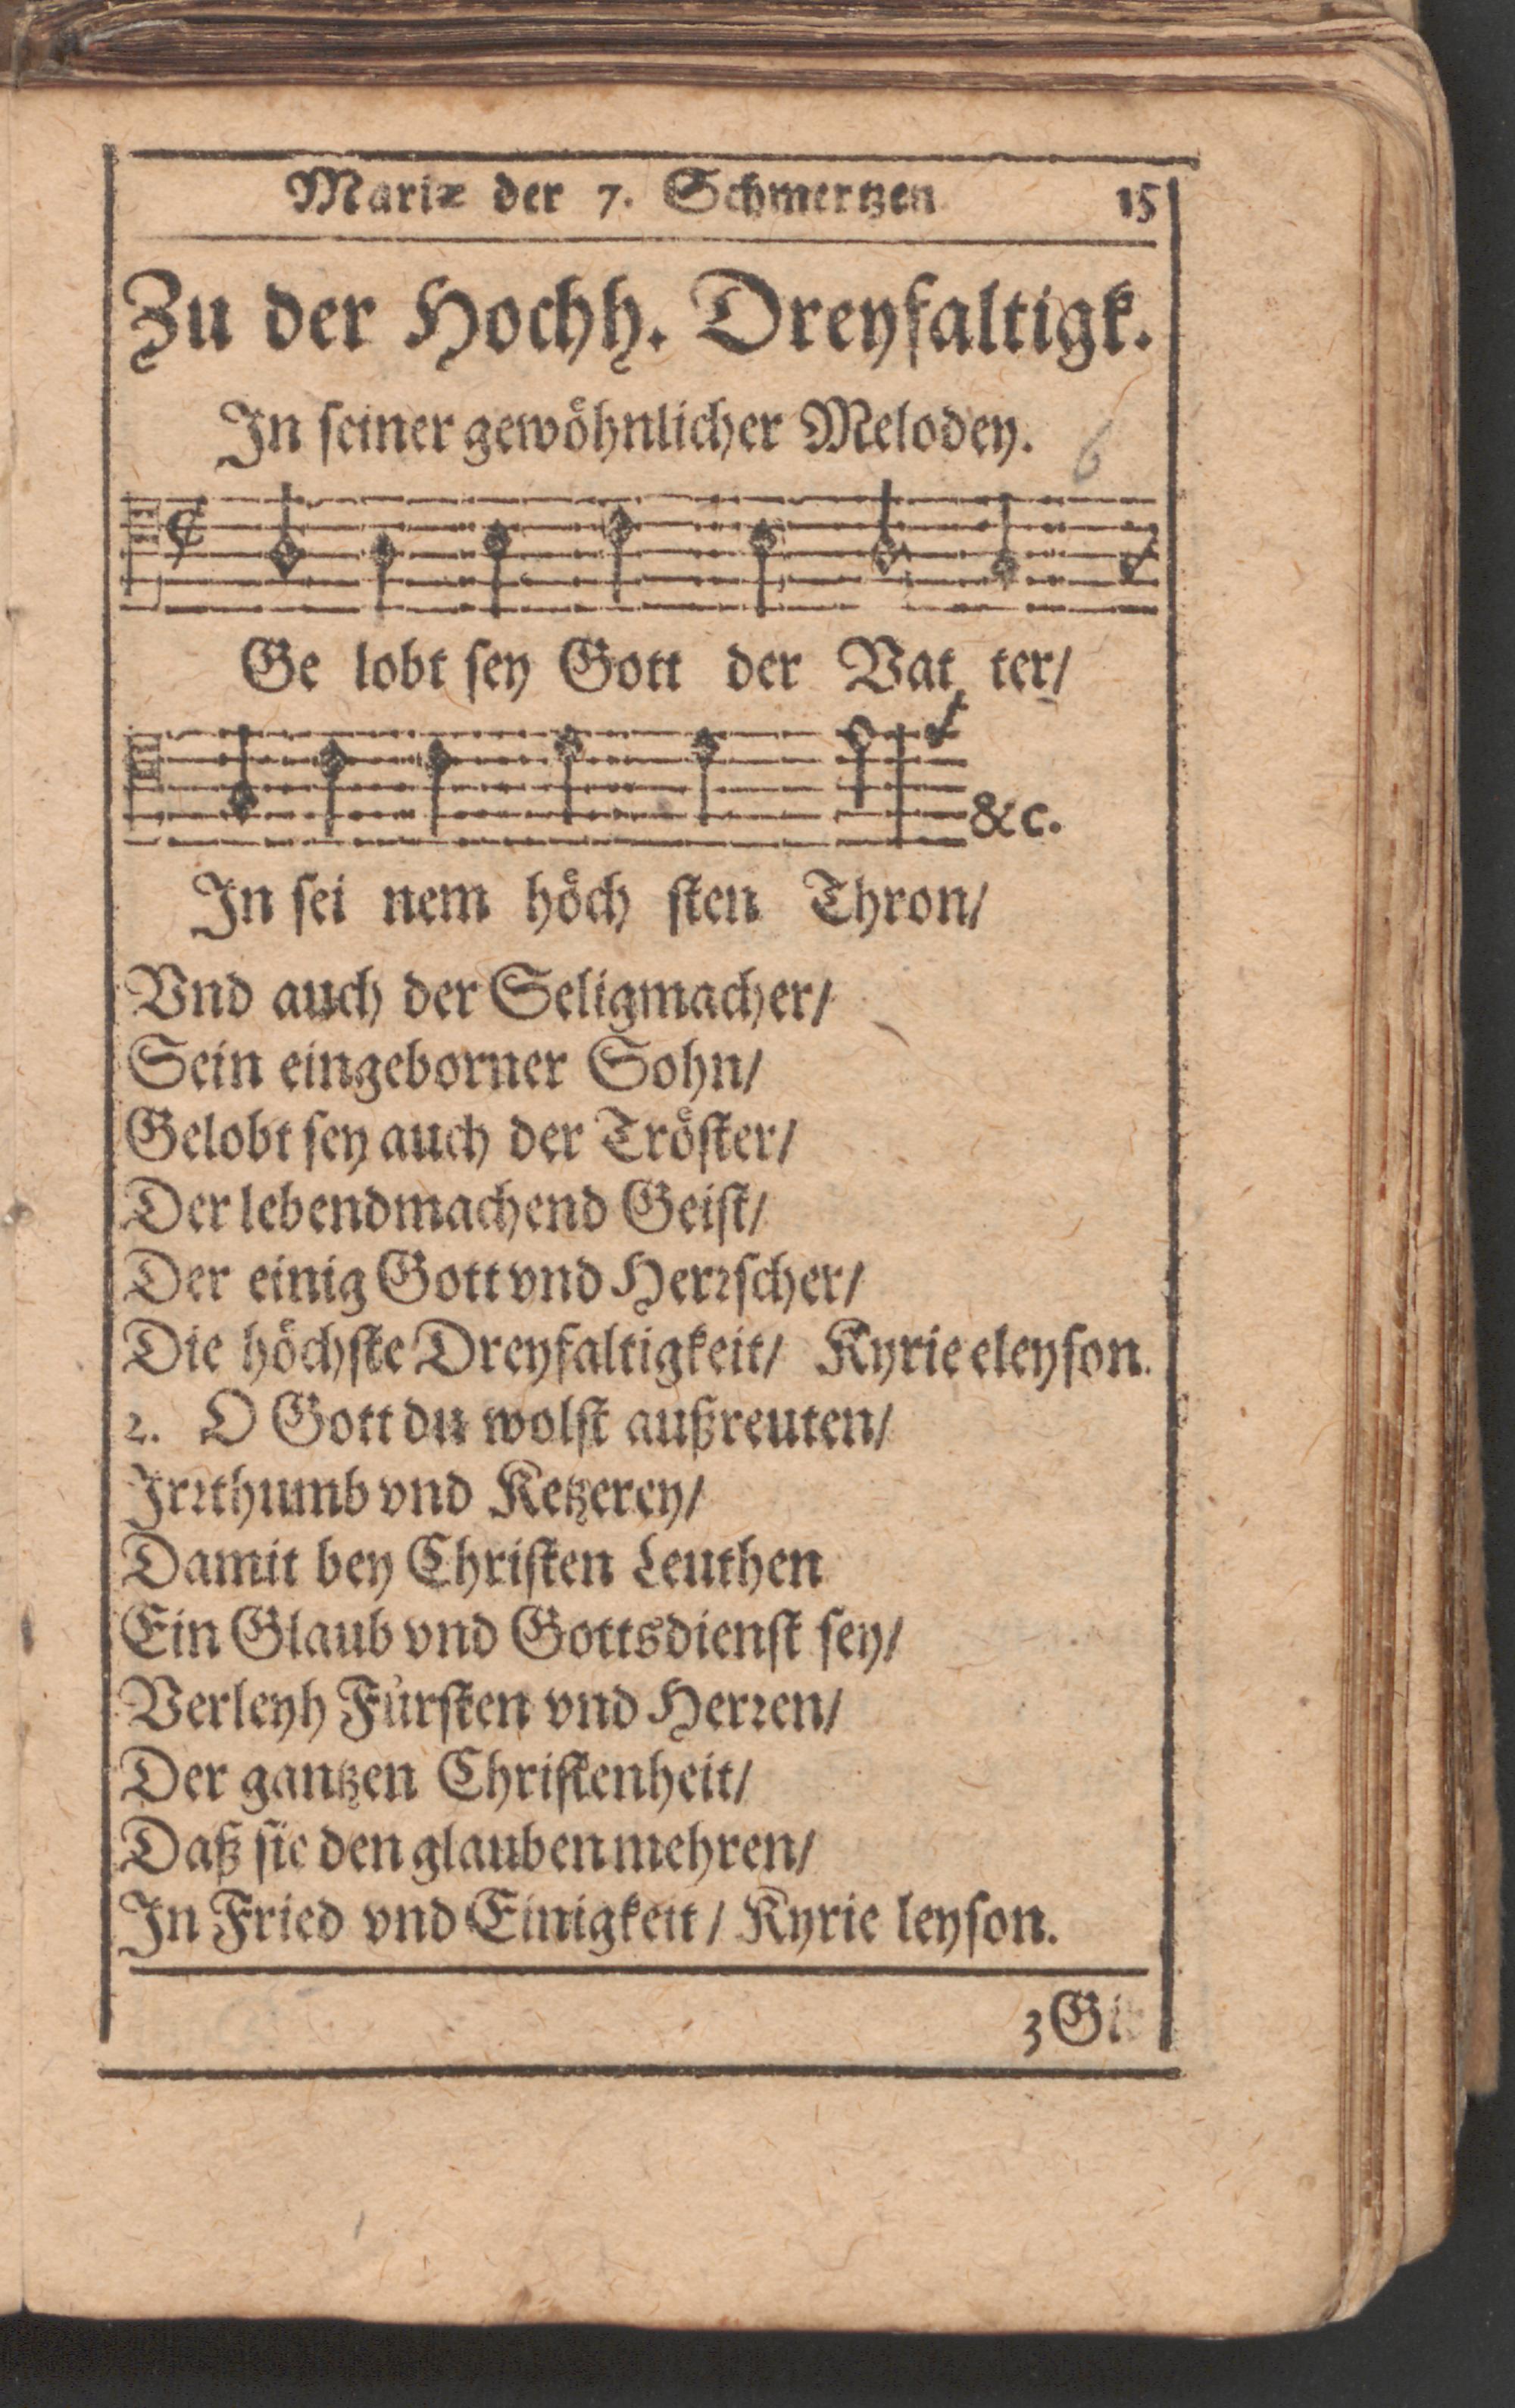 Mariæ der 7. Schmertzen 15
Zu der Hochh. Dreyfaltigk.
In ſeiner gewoͤhnlicher Melodey.
6
Ge lobt ſey Gott der Vat ter/
&c.
In ſei nem hoͤch ſten Thron/
Vnd auch der Seligmacher/
Sein eingeborner Sohn/
Gelobt ſey auch der Troͤſter/
Der lebendmachend Geiſt/
Der einig Gott vnd Herꝛſcher/
Die hoͤchſte Dreyfaltigkeit/ Kyrie eleyſon.
2. O Gott du wolſt außreuten/
Irꝛthumb vnd Ketzerey/
Damit bey Chriſten Leuthen
Ein Glaub vnd Gottsdienſt ſey/
Verleyh Fuͤrſten vnd Herꝛen/
Der gantzen Chriſtenheit/
Daß ſie den glauben mehren/
In Fried vnd Einigkeit/ Kyrie leyſon.